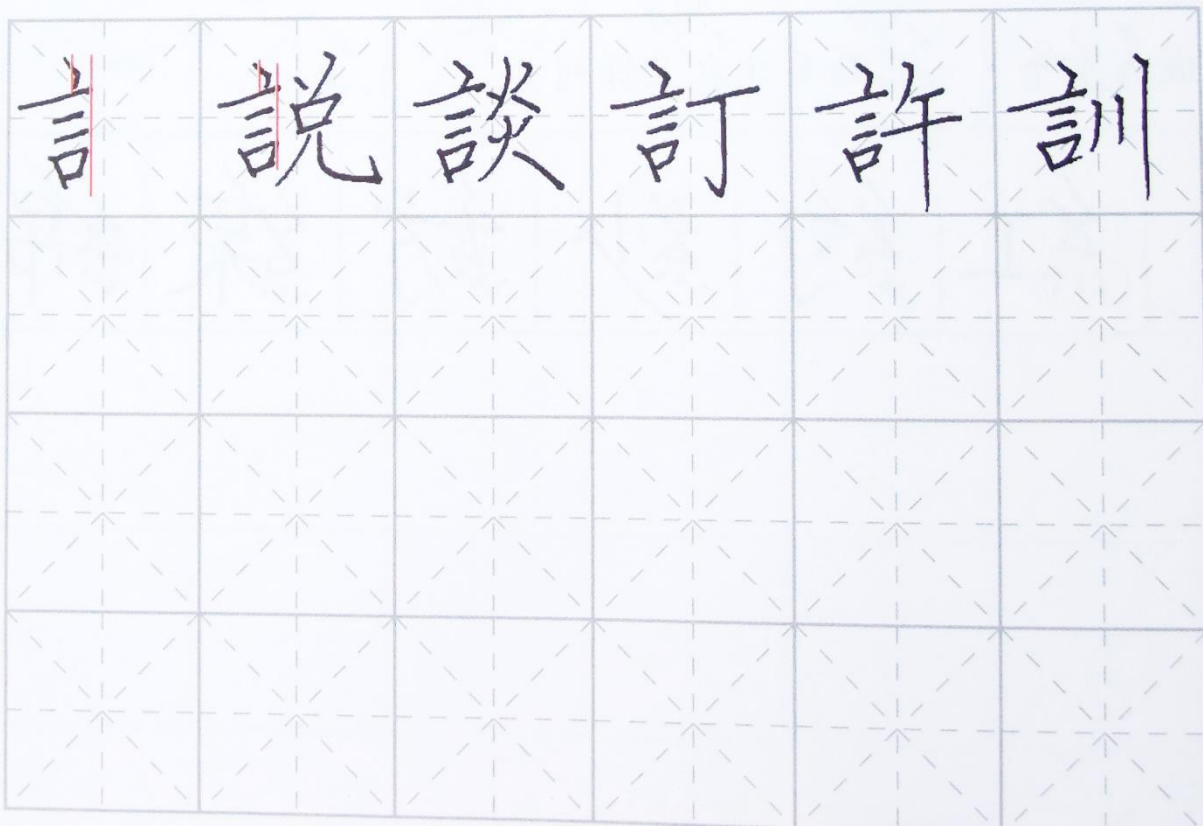 訁説談訂許訓